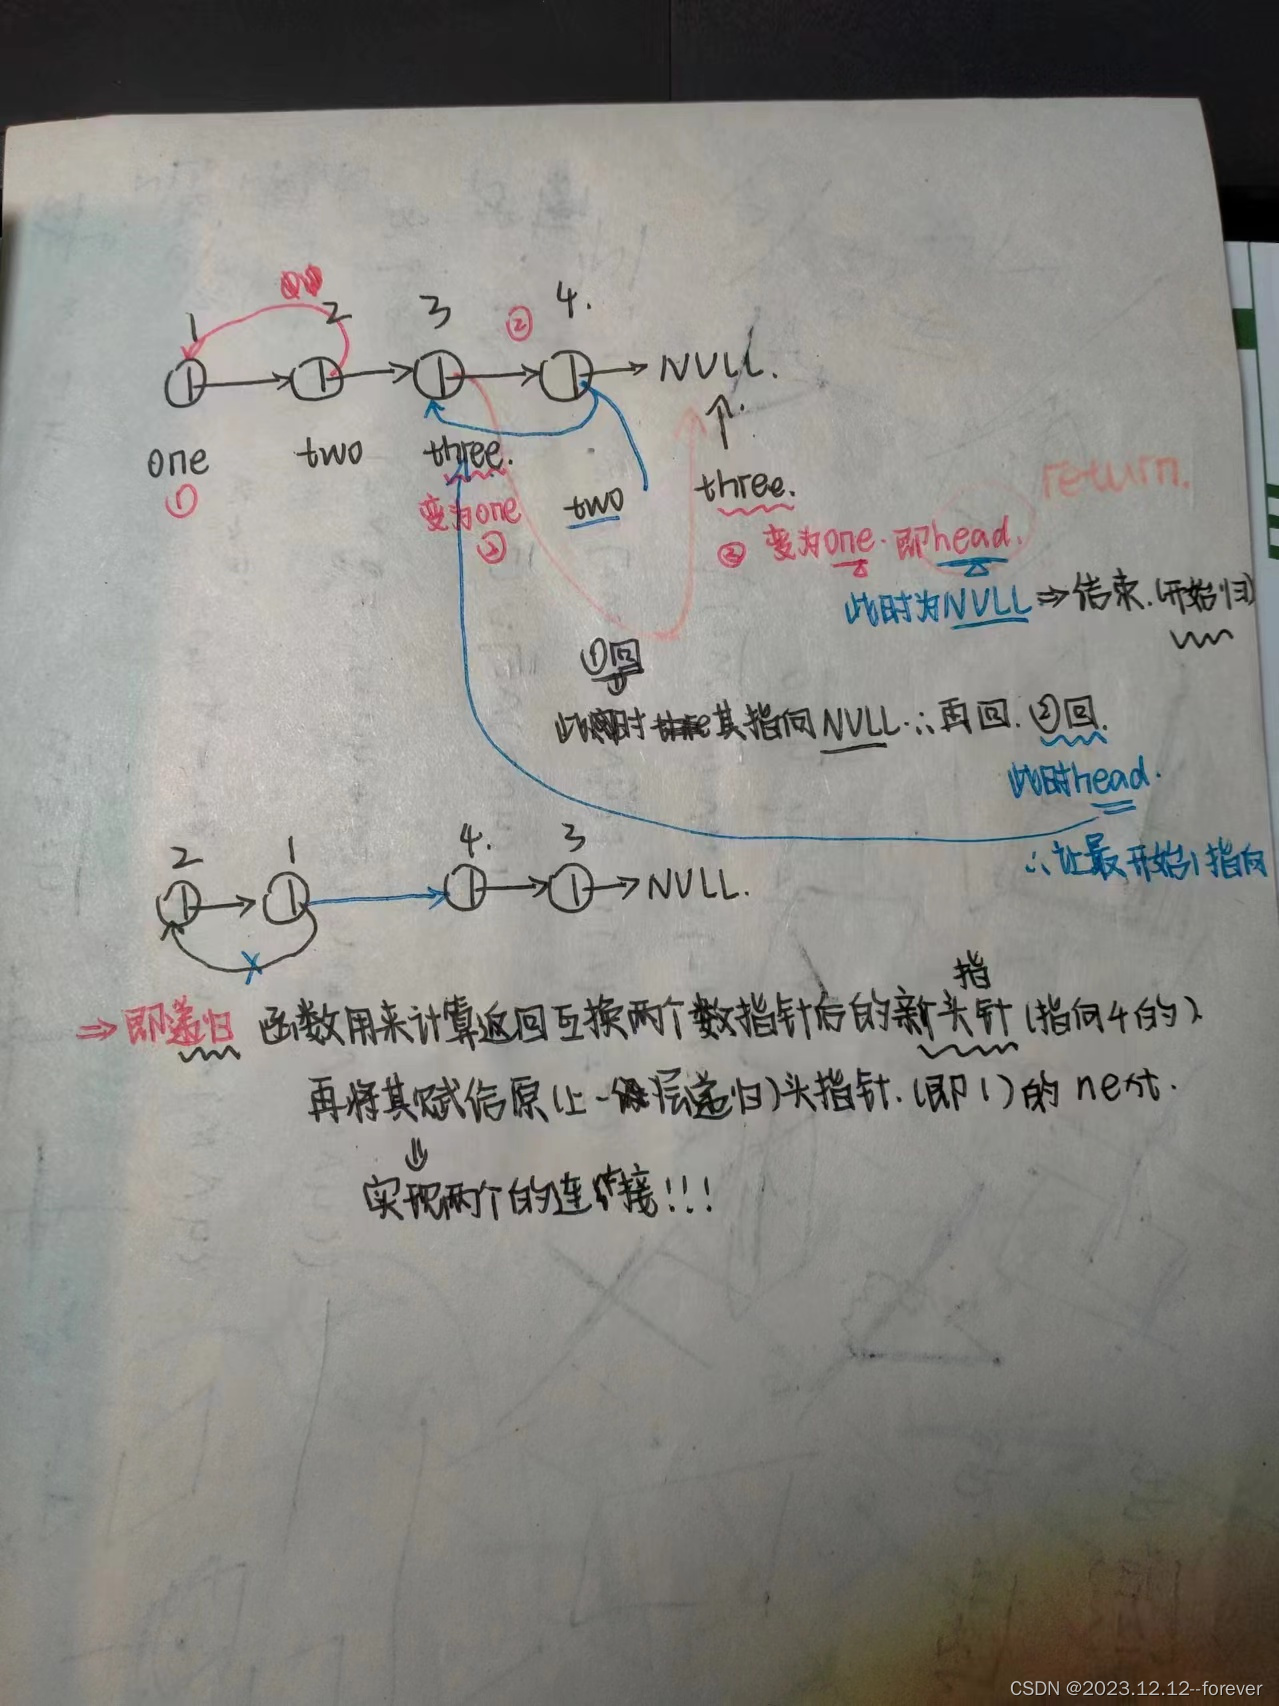 1 2 3 ② 4.
NULL.
one two three. two three.
① 变为one
②
return.
③ 变为one.即head.
此时为NULL⇒结束.(开始归)
①回
⇓
此时 其指向NULL.∴再回.②回.
此时head.
∴让最开始1指向
2 1 4. 3
NULL.
x
指
⇒即递归 函数用来计算返回互换两个数指针后的新头针(指向4的)
再将其赋给原(上一层递归)头指针.(即1)的next.
⇓
实现两个的连接!!!
CSDN @2023.12.12--forever